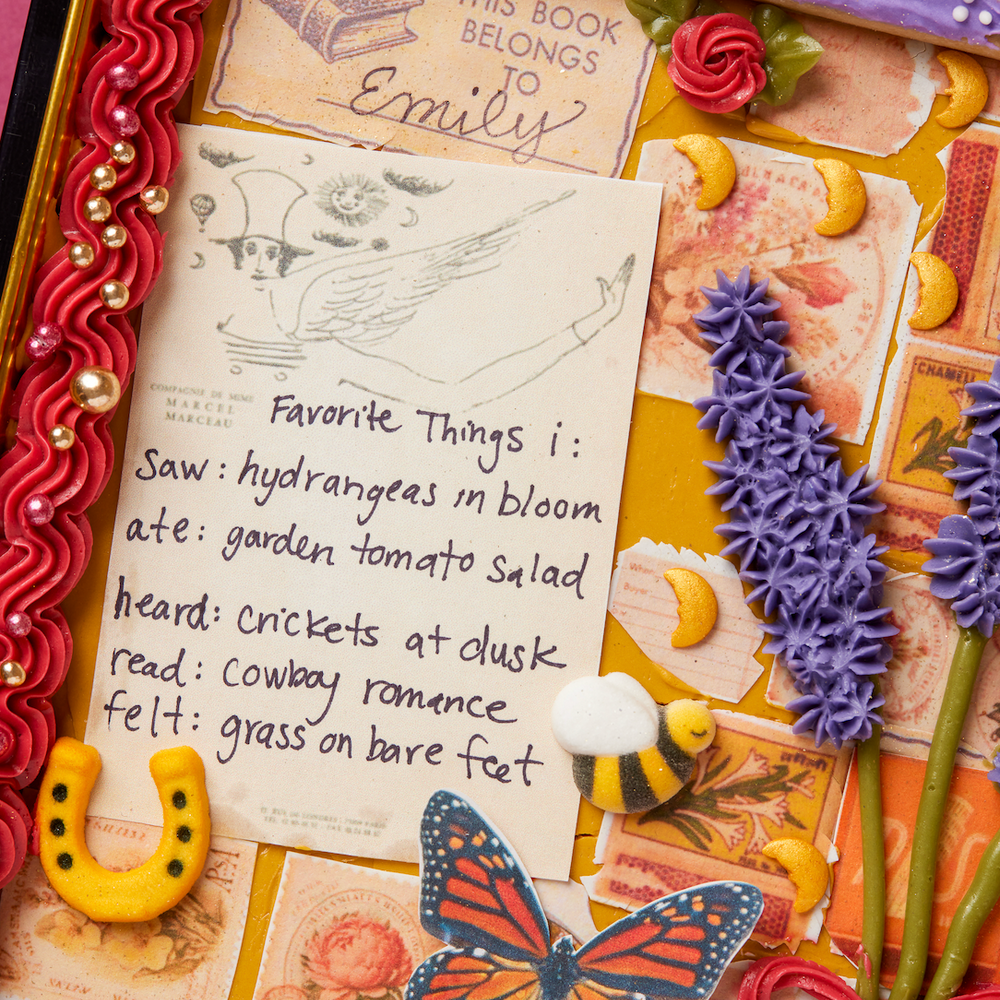 THIS BOOK
BELONGS
TO
Emily
COMPAGNIE DE MIME
MARCEL
MARCEAU
Favorite Things i:
saw: hydrangeas in bloom
ate: garden tomato salad
heard: crickets at dusk
read: cowboy romance
felt: grass on bare feet